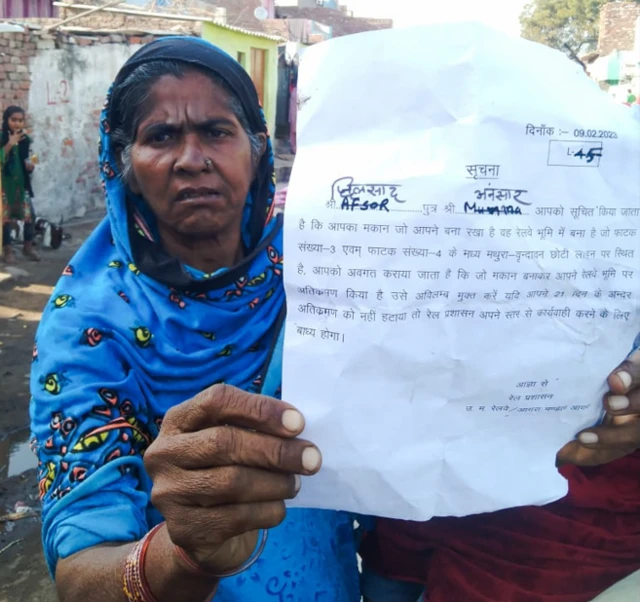 दिनाँक :– 09.02.2023
L-45
सूचना
दिलसाद अंसार
श्री AFSOR पुत्र श्री आपको सूचित किया जाता
है कि आपका मकान जो आपने बना रखा है वह रेलवे भूमि में बना है जो फाटक
संख्या–3 एवम् फाटक संख्या–4 के माध्य मथुरा–वृन्दावन छोटी लाइन पर स्थित
है, आपको अवगत कराया जाता है कि जो मकान बनाकर आपने रेलवे भूमि पर
अतिक्रमण किया है उसे अविलम्ब मुक्त करें यदि आपने 21 दिन के अन्दर
अतिक्रमण को नहीं हटाया तो रेल प्रशासन अपने स्तर से कार्यवाही करने के लिए
बाध्य होगा।
आज्ञा से
रेल प्रशासन
उ. म. रेलवे, आगरा मण्डल आगरा
L-2